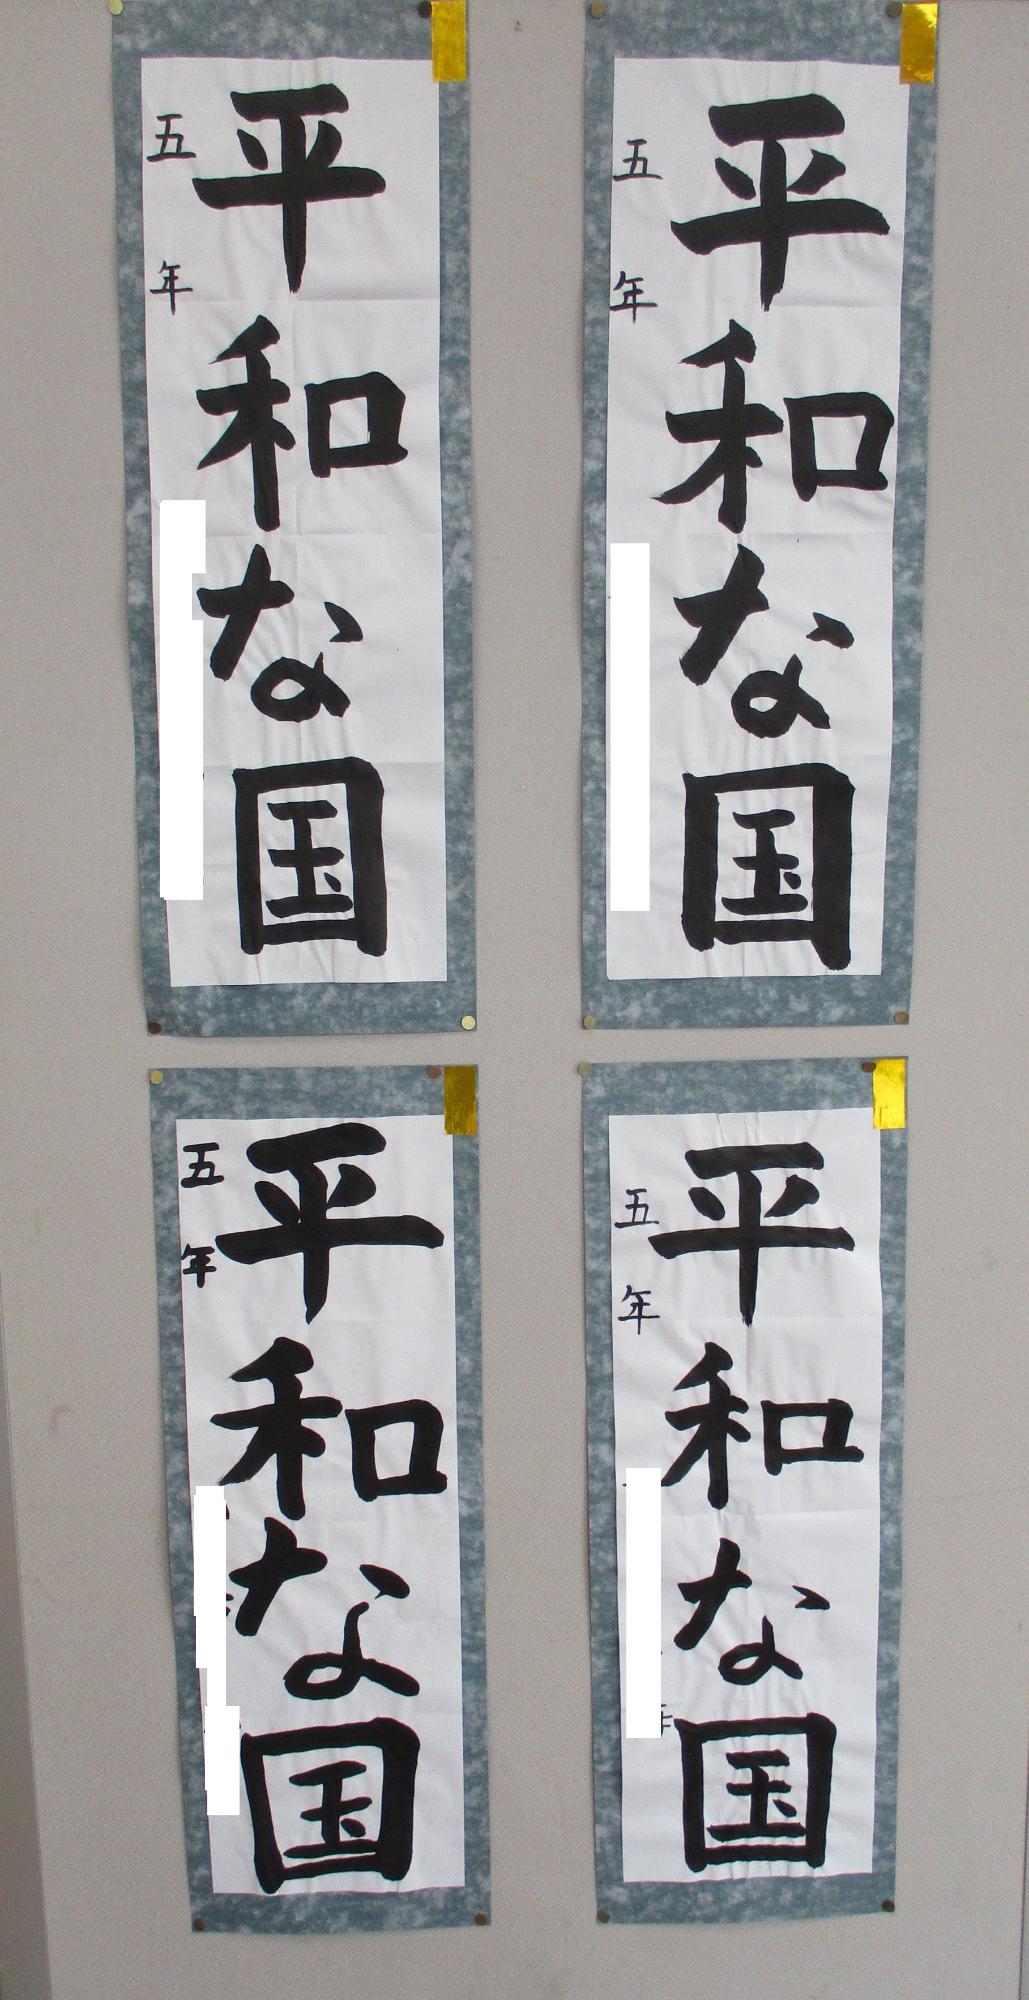 平和な国
五年
平和な国
五年
平和な国
五年
平和な国
五年